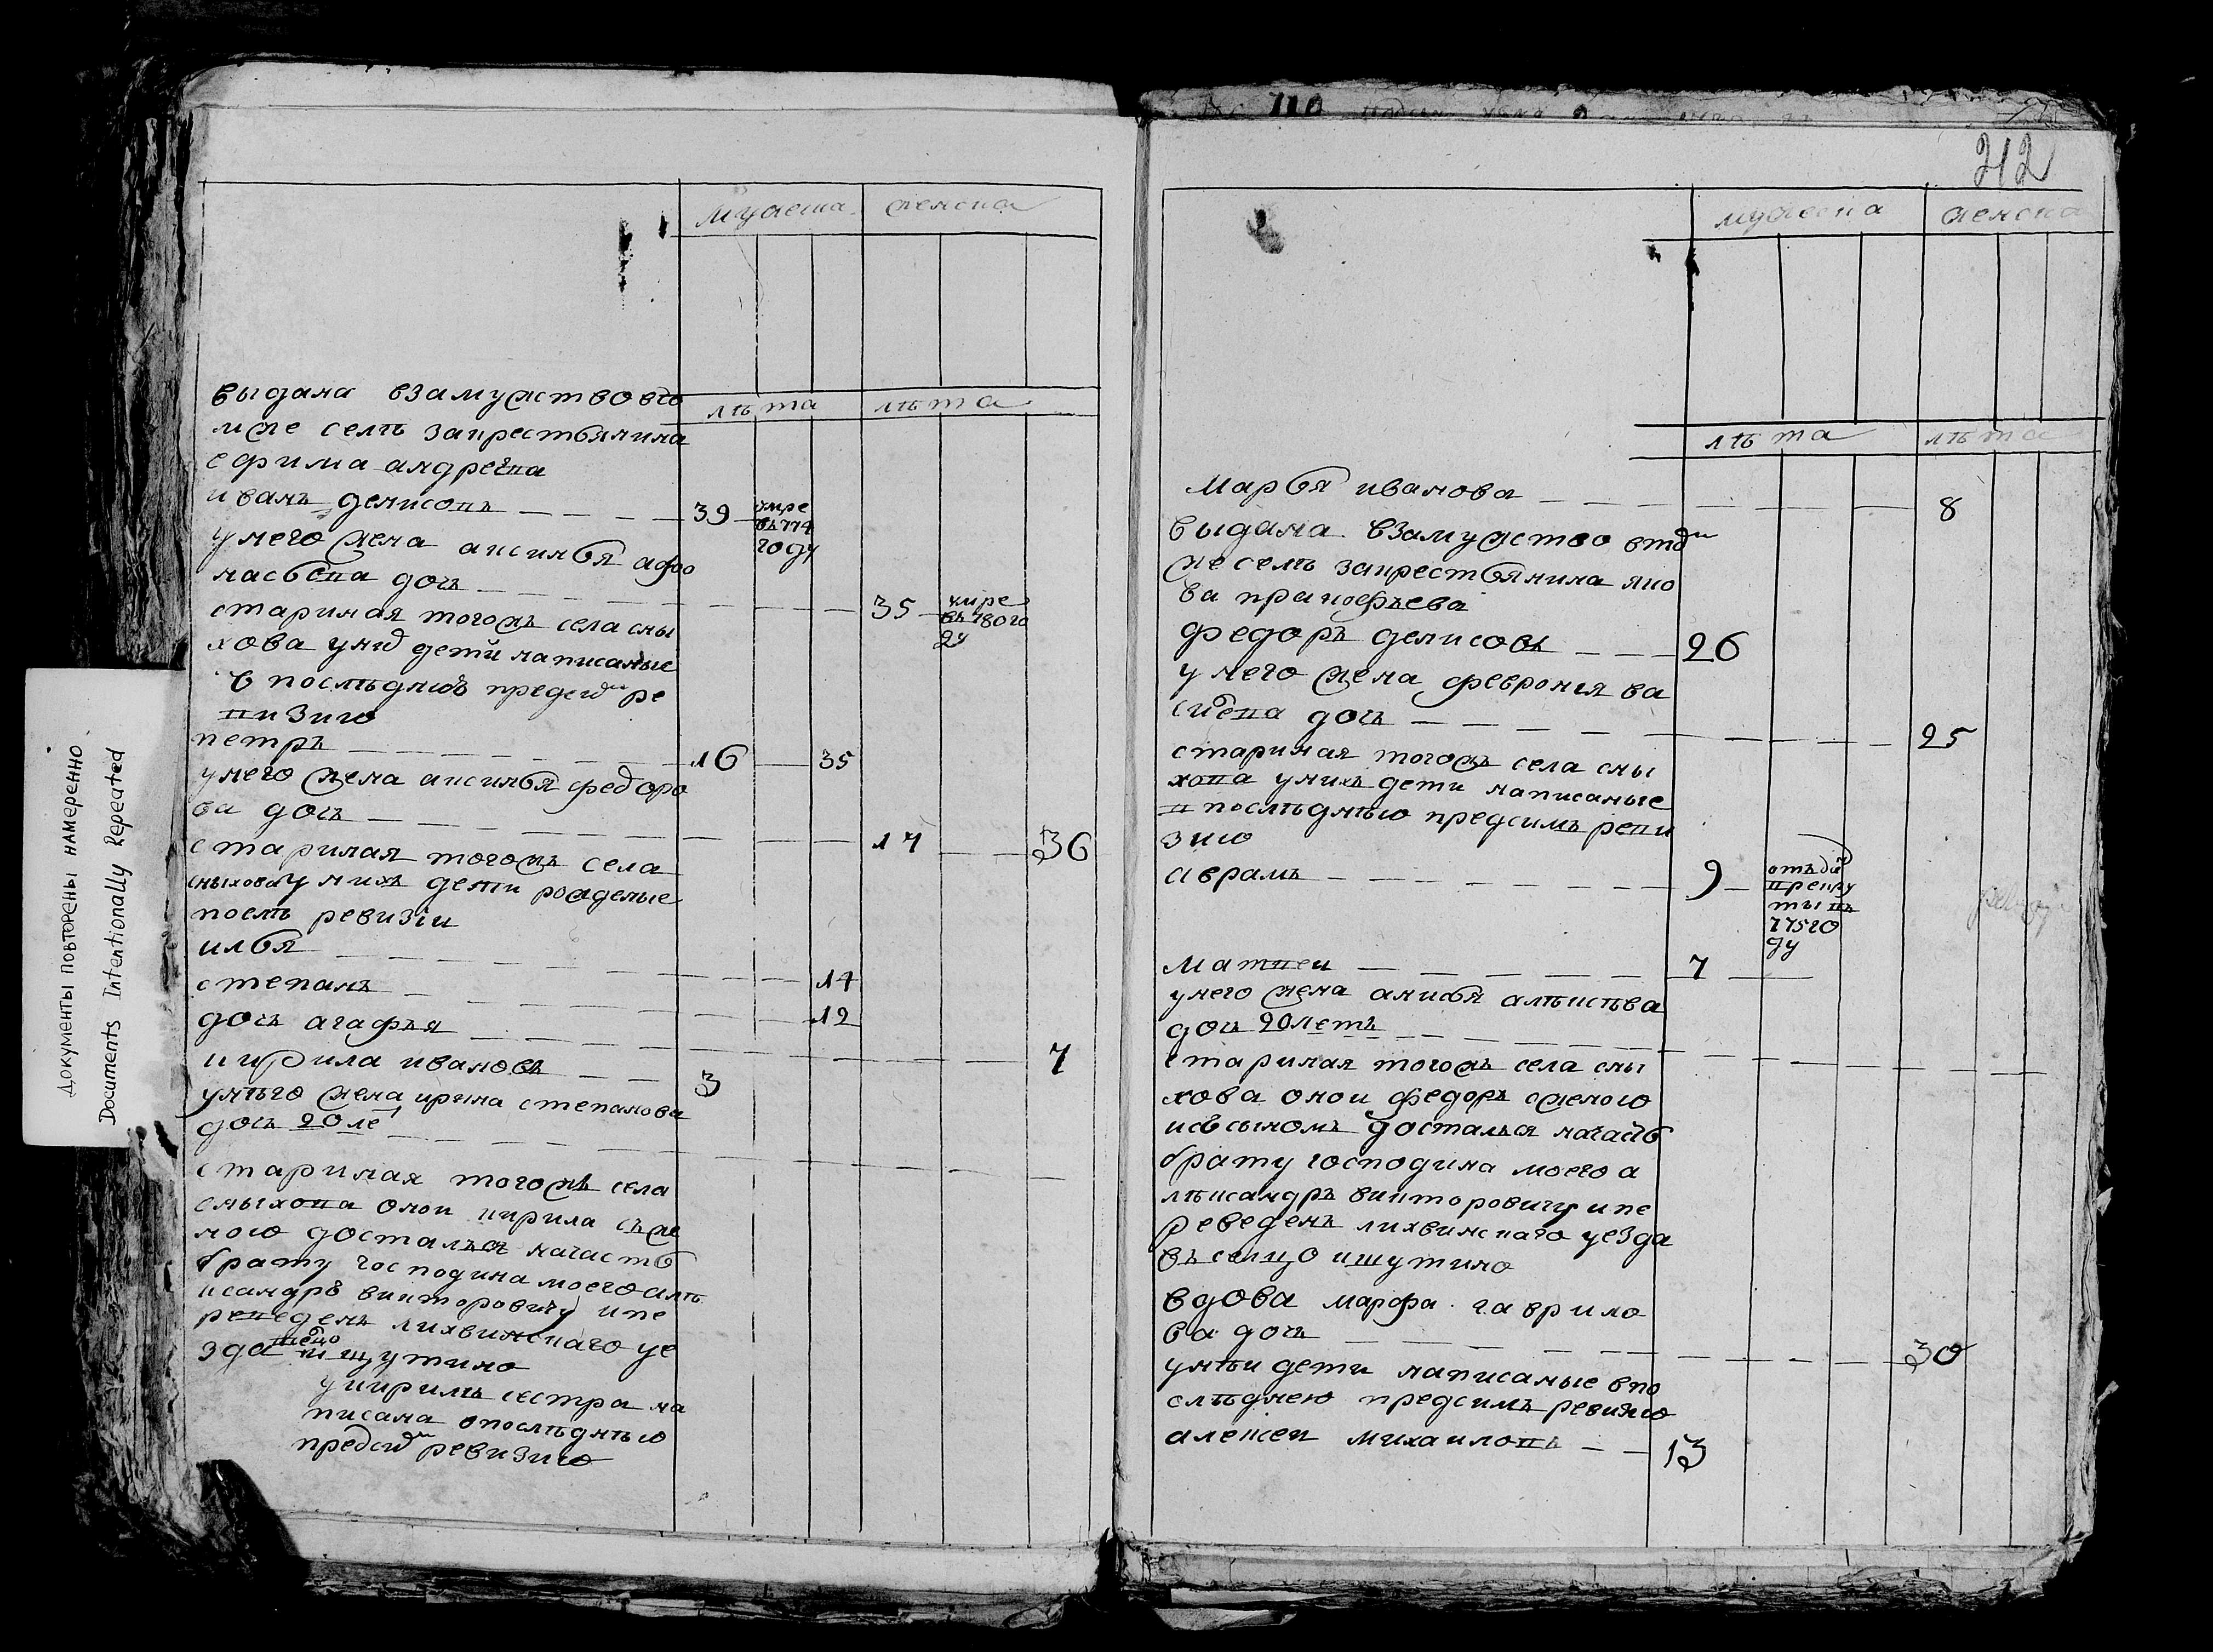 мужеска женска
лѣта лѣта
выдана взамужство вто
мже селѣ закрестьянина
ефима андреева
иванъ денисовъ 39 умре въ 774 году
у него жена аксинья афо
насьева дочь 35 умре въ 780 го ду
старинная тогожъ села сны
хова у них дети написаные
в последнюю пред сим ре
визию
петръ 16 35
у него жена аксинья федоро
ва дочь 17 36
старинная тогожъ села
сныхова у нихъ дети рожденые
послѣ ревизiи
илья 14
степанъ 12
дочь агафья 7
кирила ивановъ 3
у нѣго жена ирина степанова
дочь 20 ле
стариная тогожъ села
сныхова оной кирила съ же
ною досталься начасть
брату господина моего алѣ
ксандръ викторовичу и пе
реведенъ лихвинскаго уе
зда ишутино
у кирилъ сестра на
писана в послѣднѣю
предсим ревизию
212
мужеска женска
лѣта лѣта
марья иванова 8
выдана взамужство втом
же селѣ закрестьянина яко
ва пракофьева
федоръ денисовъ 26
у него жена февронья ва
силева дочь 25
старинная тогожъ села сны
хова у нихъ дети написаные
в послѣднѣю предсимъ реви
зию
аврамъ 9 отъдан в рекру ты въ 775 го ду
матвеи 7
у него жена анисья алѣксѣва
дочь 20 летъ
старинная тогожъ села сны
хова оной федоръ сженою
и съ сыномъ досталься начасть
брату господина моего а
лѣксандръ викторовичу и пе
реведенъ лихвинскаго уезда
въ селцо ишутино
вдова марфа гаврило
ва дочь 30
у нѣи дети написаные впо
слѣднею предсимъ ревизию
алексеи михаиловъ 13
документы повторены намеренно
Documents Intentionally Repeated